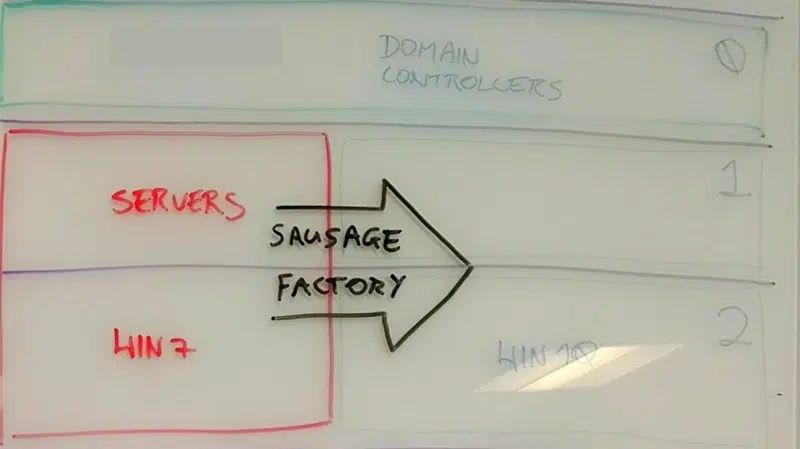 DOMAIN
CONTROLLERS
0
SERVERS
1
SAUSAGE
FACTORY
WIN 7
WIN 10
2